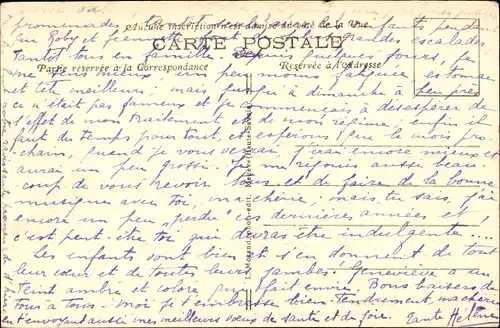 Aucune inscription n'est admise du côté de la Vue
promenades tantôt les enfants pendant
que Roby et grandes escalades
CARTE POSTALE
tantôt tous en famille. Depuis quelques jours, je
Partie réservée à la Correspondance
Réservée à l'Adresse
me sens mieux un peu moins fatiguée estomac
et tête meilleurs mais jusqu'à dimanche à peu près
ce n'était pas fameux et je commençais à désespérer de
l'effet de mon traitement et de mon régime. enfin il
faut du temps pour tout et espérons que le mois pro-
chain, quand je vous verrai j'irai encore mieux et
aurai un peu grossi. Je me réjouis aussi beau-
coup de vous revoir tous et de faire de la bonne
musique avec toi, ma chérie; mais tu sais, j'ai
encore un peu "perdu" ces dernières années et
c'est peut être toi qui devras être indulgente...
Les enfants vont bien et s'en donnent de tout
leur cœur et de toutes leurs jambes! Geneviève a un
teint ambré et coloré qui fait envie. Bons baisers de
tous à tous. Moi je t'embrasse bien tendrement, ma chérie
en t'envoyant aussi mes meilleurs vœux de santé et de joie. Tante Hélène